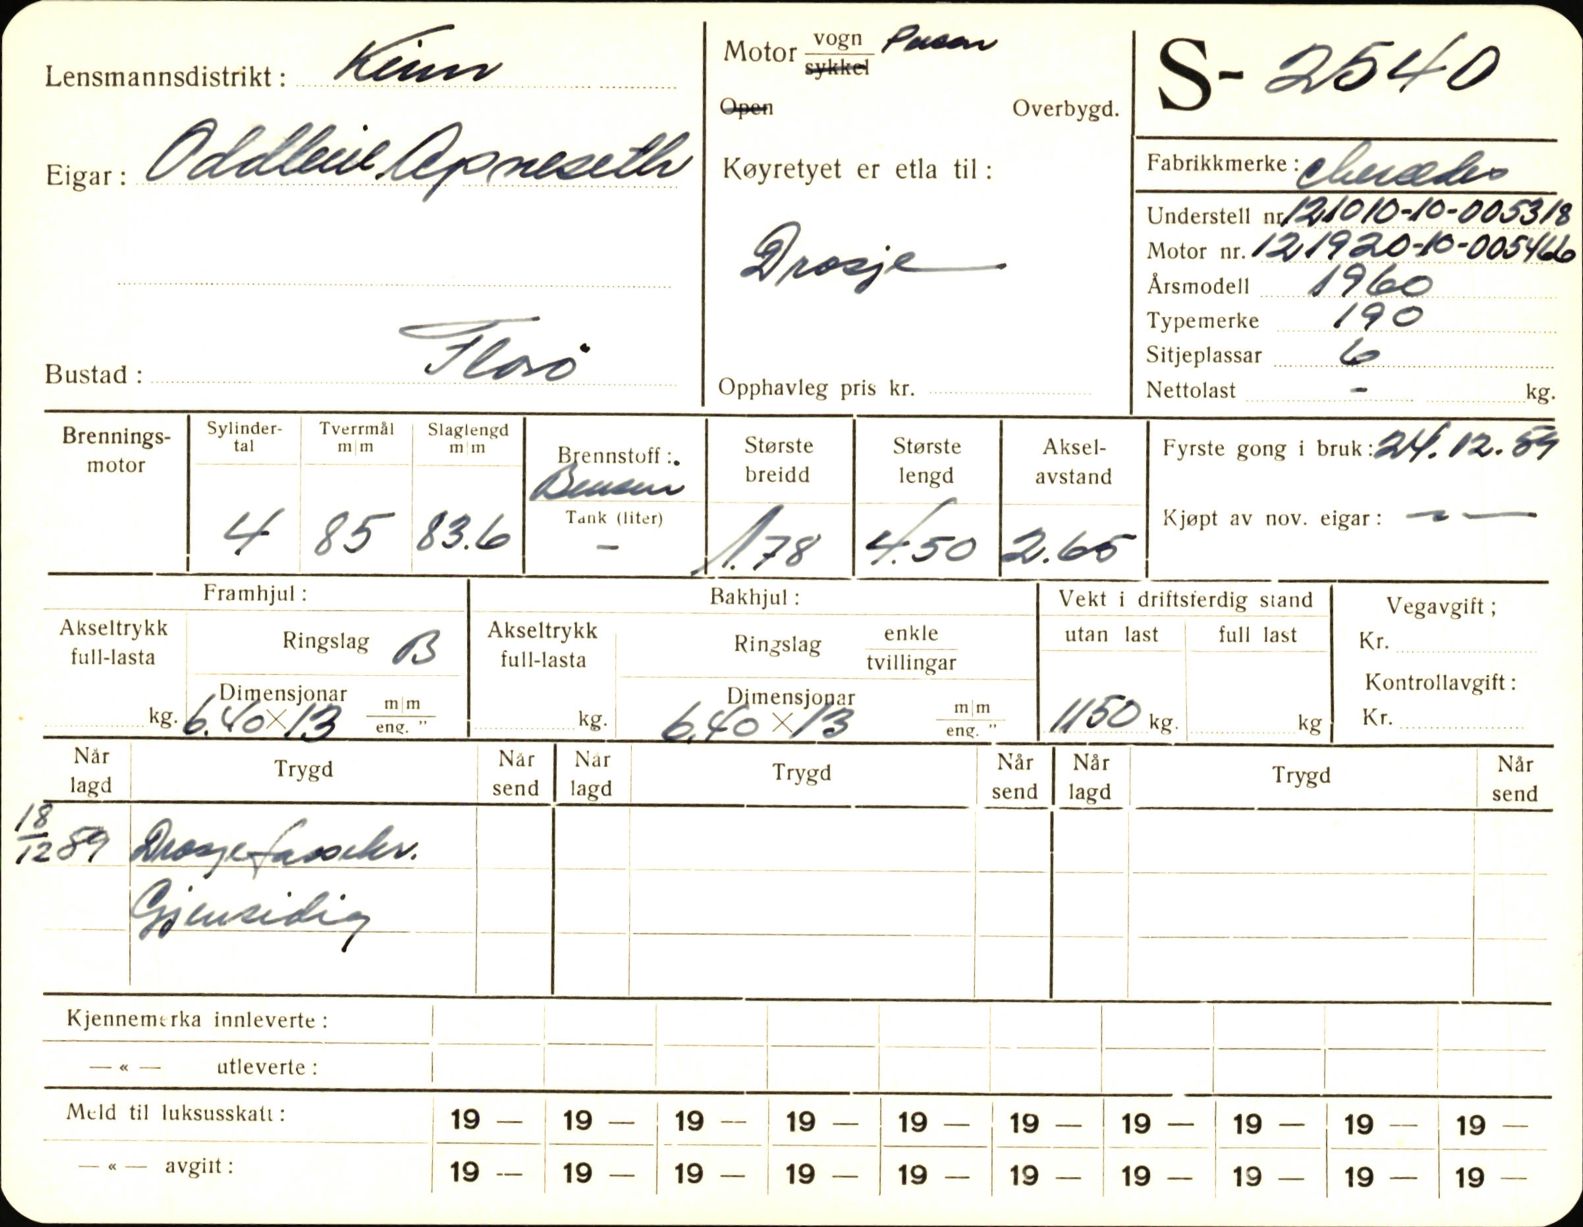 Lensmannsdistrikt: Kinn
Eigar: Oddleiv Apneseth
Bustad: Florö
Motor vogn Person
sykkel
Open Overbygd.
Køyretyet er etla til:
Drosje
Opphavleg pris kr.
S- 2540
Fabrikkmerke: Mercedes
Understell nr. 121010-10-005318
Motor nr. 121920-10-005466
Årsmodell 1960
Typemerke 190
Sitjeplassar 6
Nettolast - kg.
Brennings-motor
Sylinder-tal 4
Tverrmål m|m 85
Slaglengd m|m 83.6
Brennstoff: Bensin
Tank (liter) -
Største breidd 1.78
Største lengd 4.50
Aksel-avstand 2.65
Fyrste gong i bruk: 24.12.59
Kjøpt av nov. eigar: — —
Framhjul:
Akseltrykk full-lasta kg.
Ringslag B
Dimensjonar m|m
6.40 × 13 eng. "
Bakhjul:
Akseltrykk full-lasta kg.
Ringslag enkle
tvillingar
Dimensjonar m|m
6.40 × 13 eng. "
Vekt i driftsferdig stand
utan last full last
1150 kg. kg
Vegavgift;
Kr.
Kontrollavgift:
Kr.
Når lagd Trygd Når send Når lagd Trygd Når send Når lagd Trygd Når send
18/12 59 Drosjeassekr.
Gjensidig
Kjennemerka innleverte:
— « — utleverte:
Meld til luksusskatt: 19 — 19 — 19 — 19 — 19 — 19 — 19 — 19 — 19 — 19 —
— « — avgift: 19 — 19 — 19 — 19 — 19 — 19 — 19 — 19 — 19 — 19 —